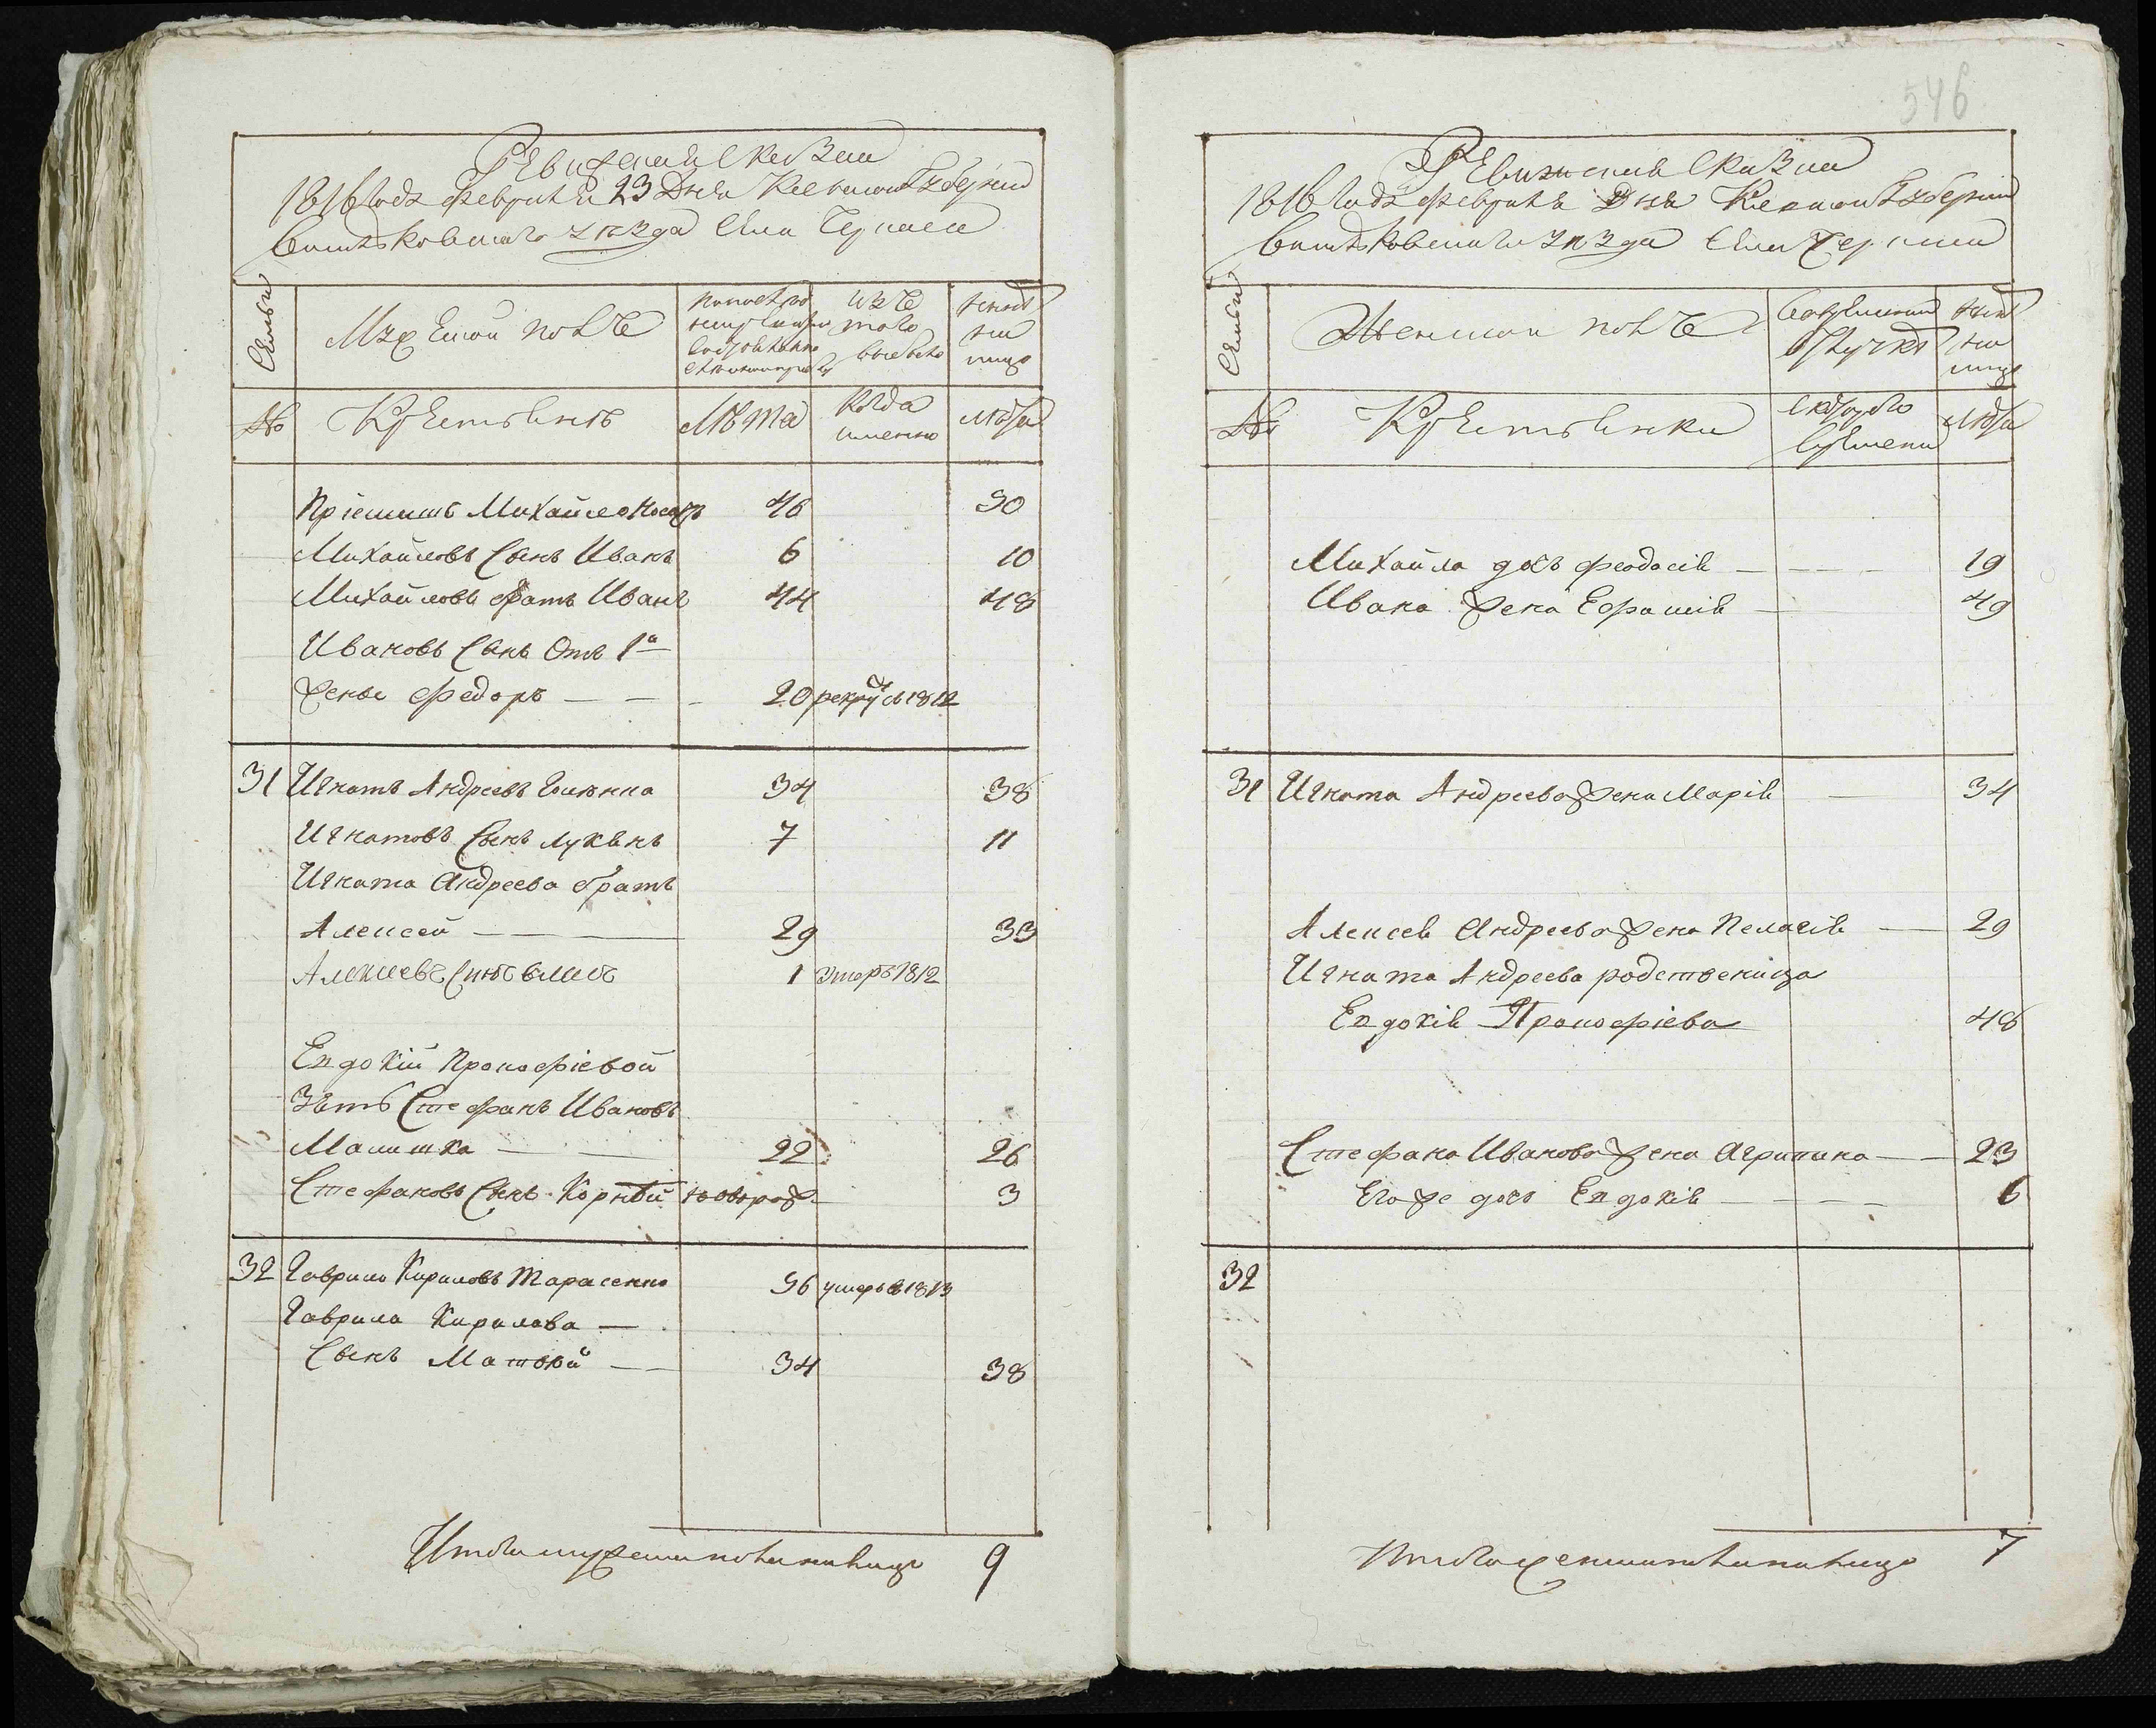 Ревизская Сказка
1816 года февраля 23 Дня Киевской Губернии
Васильковского уезда Села Черкаса
Семьи
Мужеской полъ
изъ того выбыло
Ныне на лицо
№
Крестьянъ
Лѣта
Когда именно
Лѣта
Пріемишъ Михайло Носарь 46 50
Михайловъ Сынъ Иванъ 6 10
Михайловъ братъ Иванъ 44 48
Ивановъ Сынъ Отъ 1й
жены Федоръ — — - 20 рекруѣ 1812
31 Игнатъ Андреевъ 34 38
Игнатовъ Сынъ Лукянъ 7 11
Игната Андреева братъ
Алексей — — 29 33
Алексеевъ Сынъ 1 умеръ 1812
Евдокіи Прокофіевой
Зять Стефанъ Ивановъ
Малишка — — 22 26
Стефановъ Сынъ Корнѣй новорож. 3
32 Гаврило Кириловъ Тарасенко 56 умеръ в 1813
Гаврила Кирилова —
Сынъ Матвѣй — — 34 38
Итого мужеска пола на лицо 9
546
Ревизская Сказка
1816 года февраля Дня Киевской Губернии
Васильковского уезда Села Черкаса
Семьи
Женской полъ
Ныне на лицо
№
Крестьянки
Лѣта
Михайла дочь Феодосія — — — — 19
Ивана жена Ефрасія — 49
31 Игната Андреева жена Марія — 34
Алексея Андреева жена Пелагія — 29
Игната Андреева родственица
Евдокія Прокофіева 48
Стефана Иванова жена Агрипина — — 23
Его же дочь Евдокія — — — 6
32
Итого женска пола на лицо 7